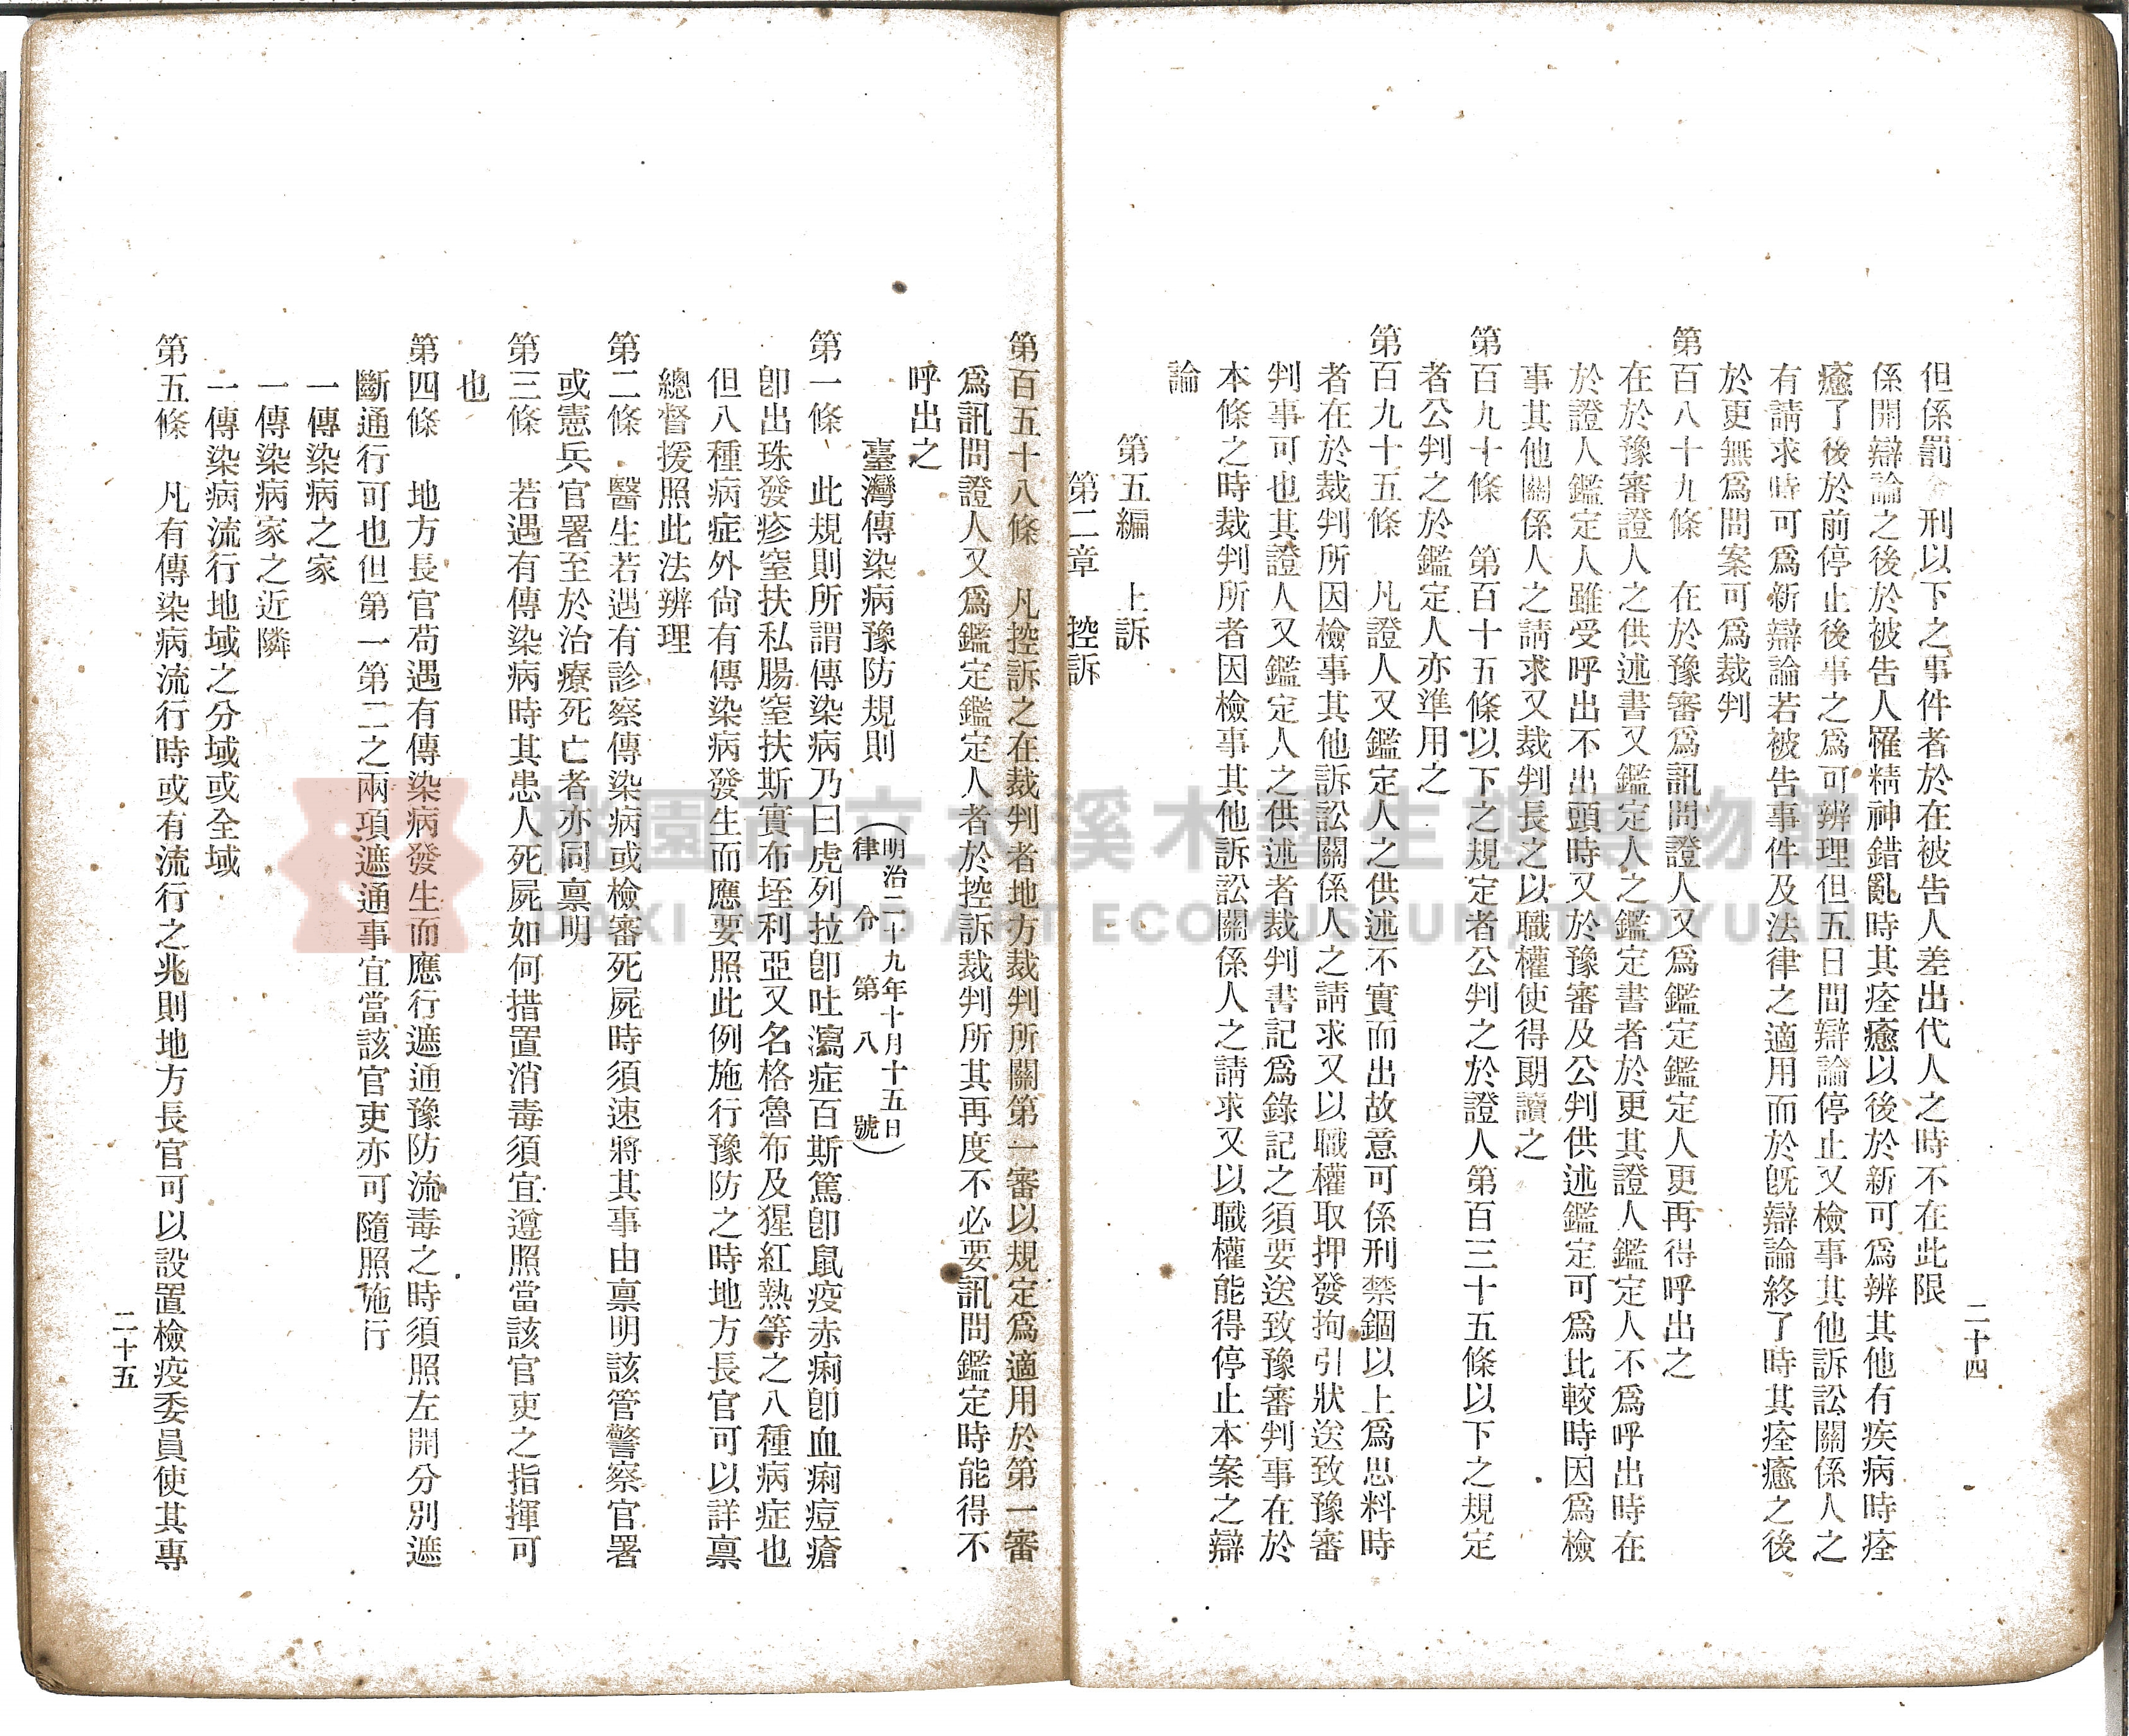 但係罰金刑以下之事件者於在被告人差出代人之時不在此限
係開辯論之後於被告人罹精神錯亂時其痊癒以後於新可爲辨其他有疾病時痊
癒了後於前停止後事之爲可辨理但五日間辯論停止又檢事其他訴訟關係人之
有請求時可爲新辯論若被告事件及法律之適用而於旣辯論終了時其痊癒之後
於更無爲問案可爲裁判
第百八十九條　在於豫審爲訊問證人又爲鑑定鑑定人更再得呼出之
在於豫審證人之供述書又鑑定人之鑑定書者於更其證人鑑定人不爲呼出時在
於證人鑑定人雖受呼出不出頭時又於豫審及公判供述鑑定可爲比較時因爲檢
事其他關係人之請求又裁判長之以職權使得朗讀之
第百九十條　第百十五條以下之規定者公判之於證人第百三十五條以下之規定
者公判之於鑑定人亦準用之
第百九十五條　凡證人又鑑定人之供述不實而出故意可係刑禁錮以上爲思料時
者在於裁判所因檢事其他訴訟關係人之請求又以職權取押發拘引狀送致豫審
判事可也其證人又鑑定人之供述者裁判書記爲錄記之須要送致豫審判事在於
本條之時裁判所者因檢事其他訴訟關係人之請求又以職權能得停止本案之辯
論
第五編　上訴
第二章　控訴
二十四
第百五十八條　凡控訴之在裁判者地方裁判所關第一審以規定爲適用於第一審
爲訊問證人又爲鑑定鑑定人者於控訴裁判所其再度不必要訊問鑑定時能得不
呼出之
臺灣傳染病豫防規則　（明治二十九年十月十五日）
（律令第八號）
第一條　此規則所謂傳染病乃曰虎列拉卽吐瀉症百斯篤卽鼠疫赤痢卽血痢痘瘡
卽出珠發疹窒扶私腸窒扶斯實布垤利亞又名格魯布及猩紅熱等之八種病症也
但八種病症外尙有傳染病發生而應要照此例施行豫防之時地方長官可以詳禀
總督援照此法辨理
第二條　醫生若遇有診察傳染病或檢審死屍時須速將其事由禀明該管警察官署
或憲兵官署至於治療死亡者亦同禀明
第三條　若遇有傳染病時其患人死屍如何措置消毒須宜遵照當該官吏之指揮可
也
第四條　地方長官苟遇有傳染病發生而應行遮通豫防流毒之時須照左開分別遮
斷通行可也但第一第二之兩項遮通事宜當該官吏亦可隨照施行
一傳染病之家
一傳染病家之近隣
一傳染病流行地域之分域或全域
第五條　凡有傳染病流行時或有流行之兆則地方長官可以設置檢疫委員使其專
二十五
桃園市立大溪木藝生態博物館
DAXI WOOD ART ECOMUSEUM, TAOYUAN